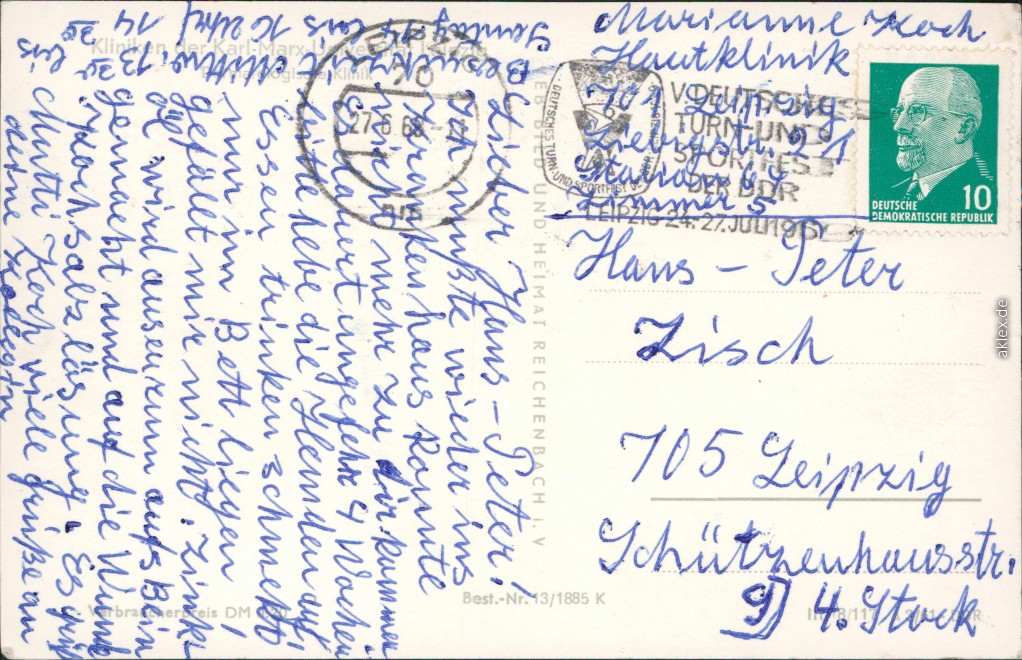 Marianne Koch
Hautklinik
701 Leipzig
Liebigstr. 21
Station
Zimmer 5
Hans-Peter
Zisch
705 Leipzig
Schützenhausstr.
9) 4. Stock
Lieber Hans-Peter!
Ich mußte wieder ins
Krankenhaus konnte
nicht mehr zu dir kommen
Es dauert ungefehr 4 Wochen
bitte hebe die Hemden auf,
Essen trinken schmekt
nur im Bett liegen
gefält mir nicht. Zink
öl wird auserenn aufs Bein
gemacht und auf die Wunde
Kochsalzläsung. Es grüßt
Mutti Koch viele grüße an
deine Kollegin
Besuchszeit Mittwo. 13 30 bis
Sonntag 14 bis 16 Uhr
14
Kliniken der Karl-Marx-Universität Leipzig
Dermatologische Klinik
LEIPZIG
70
27.6.69
V. DEUTSCHES
TURN- UND
SPORTFEST
DER DDR
LEIPZIG 24.-27. JULI 1969
DEUTSCHES TURN- UND SPORTFEST DER DDR
10
DEUTSCHE
DEMOKRATISCHE REPUBLIK
BILD UND HEIMAT REICHENBACH i. V
Verbraucherpreis DM 0,20
Best.-Nr. 13/1885 K
DDR
aklex.de